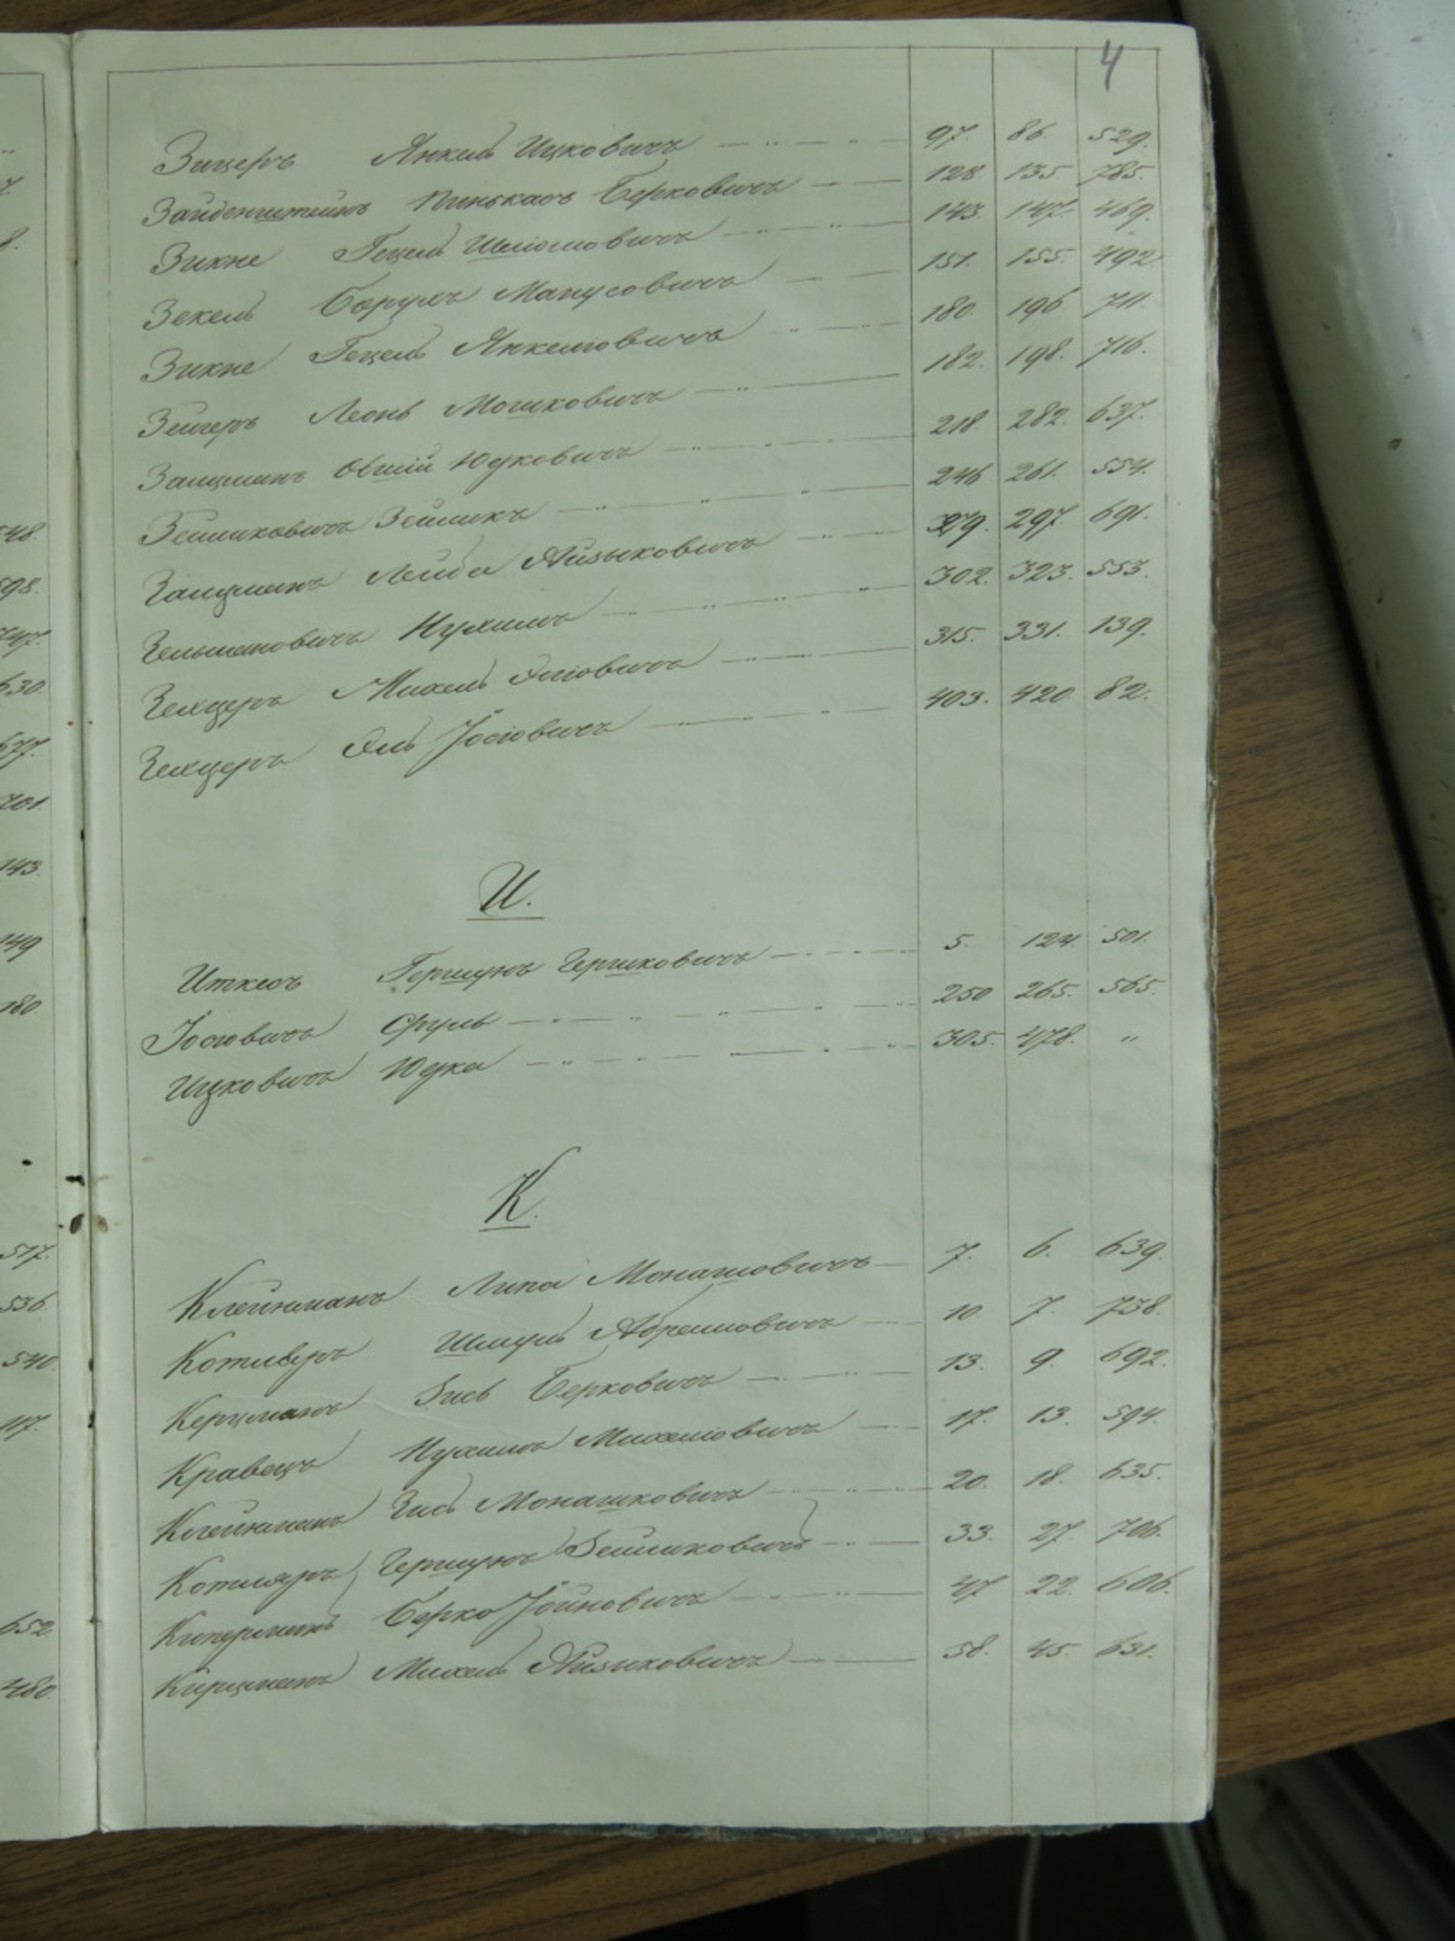 4
Зицеръ Янкель Ицковичъ 97. 86. 529.
Зайденштейнъ Пинькасъ Берковичъ 128. 135. 785.
Зикне Гецель Шліомовичъ 143. 147. 469.
Зекель Борухъ Манусовичъ 151. 155. 492.
Зикне Гецель Янкеліовичъ 180. 196 711.
Зейгеръ Леонъ Мошковичъ 182. 198. 716.
Залцманъ Овшій Юдковичъ 218. 282. 637.
Зейликовичъ Зейликъ 246 261. 554.
Залцманъ Лейба Айзыковичъ 279. 297. 691.
Зельмановичъ Нухимъ 302. 323. 553.
Зелцеръ Михель Эліовичъ 315. 331. 139.
Зелцеръ Эль Іосіовичъ 403. 420 82.
И.
Иткисъ Гершунъ Гершковичъ 5. 124. 501.
Іосіовичъ Сруль 250 265. 565.
Ицковичъ Юдка 305. 478. "
К.
Клейнманъ Липа Монашовичъ 7. 6. 639.
Котляръ Шмуль Абрамовичъ 10. 7. 738.
Керцманъ Зись Берковичъ 13. 9. 692.
Кравецъ Нухимъ Михеліовичъ 17. 13. 594.
Клейнманъ Зись Монашковичъ 20. 18. 635.
Котляръ Гершунъ Зейликовичъ 33. 27 706.
Киперманъ Берко Іойновичъ 47 22. 606.
Кирцманъ Михель Айзыковичъ 58. 45. 631.